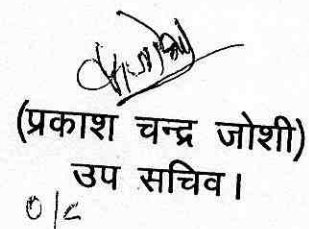 (प्रकाश चन्द्र जोशी)
उप सचिव।
o/c